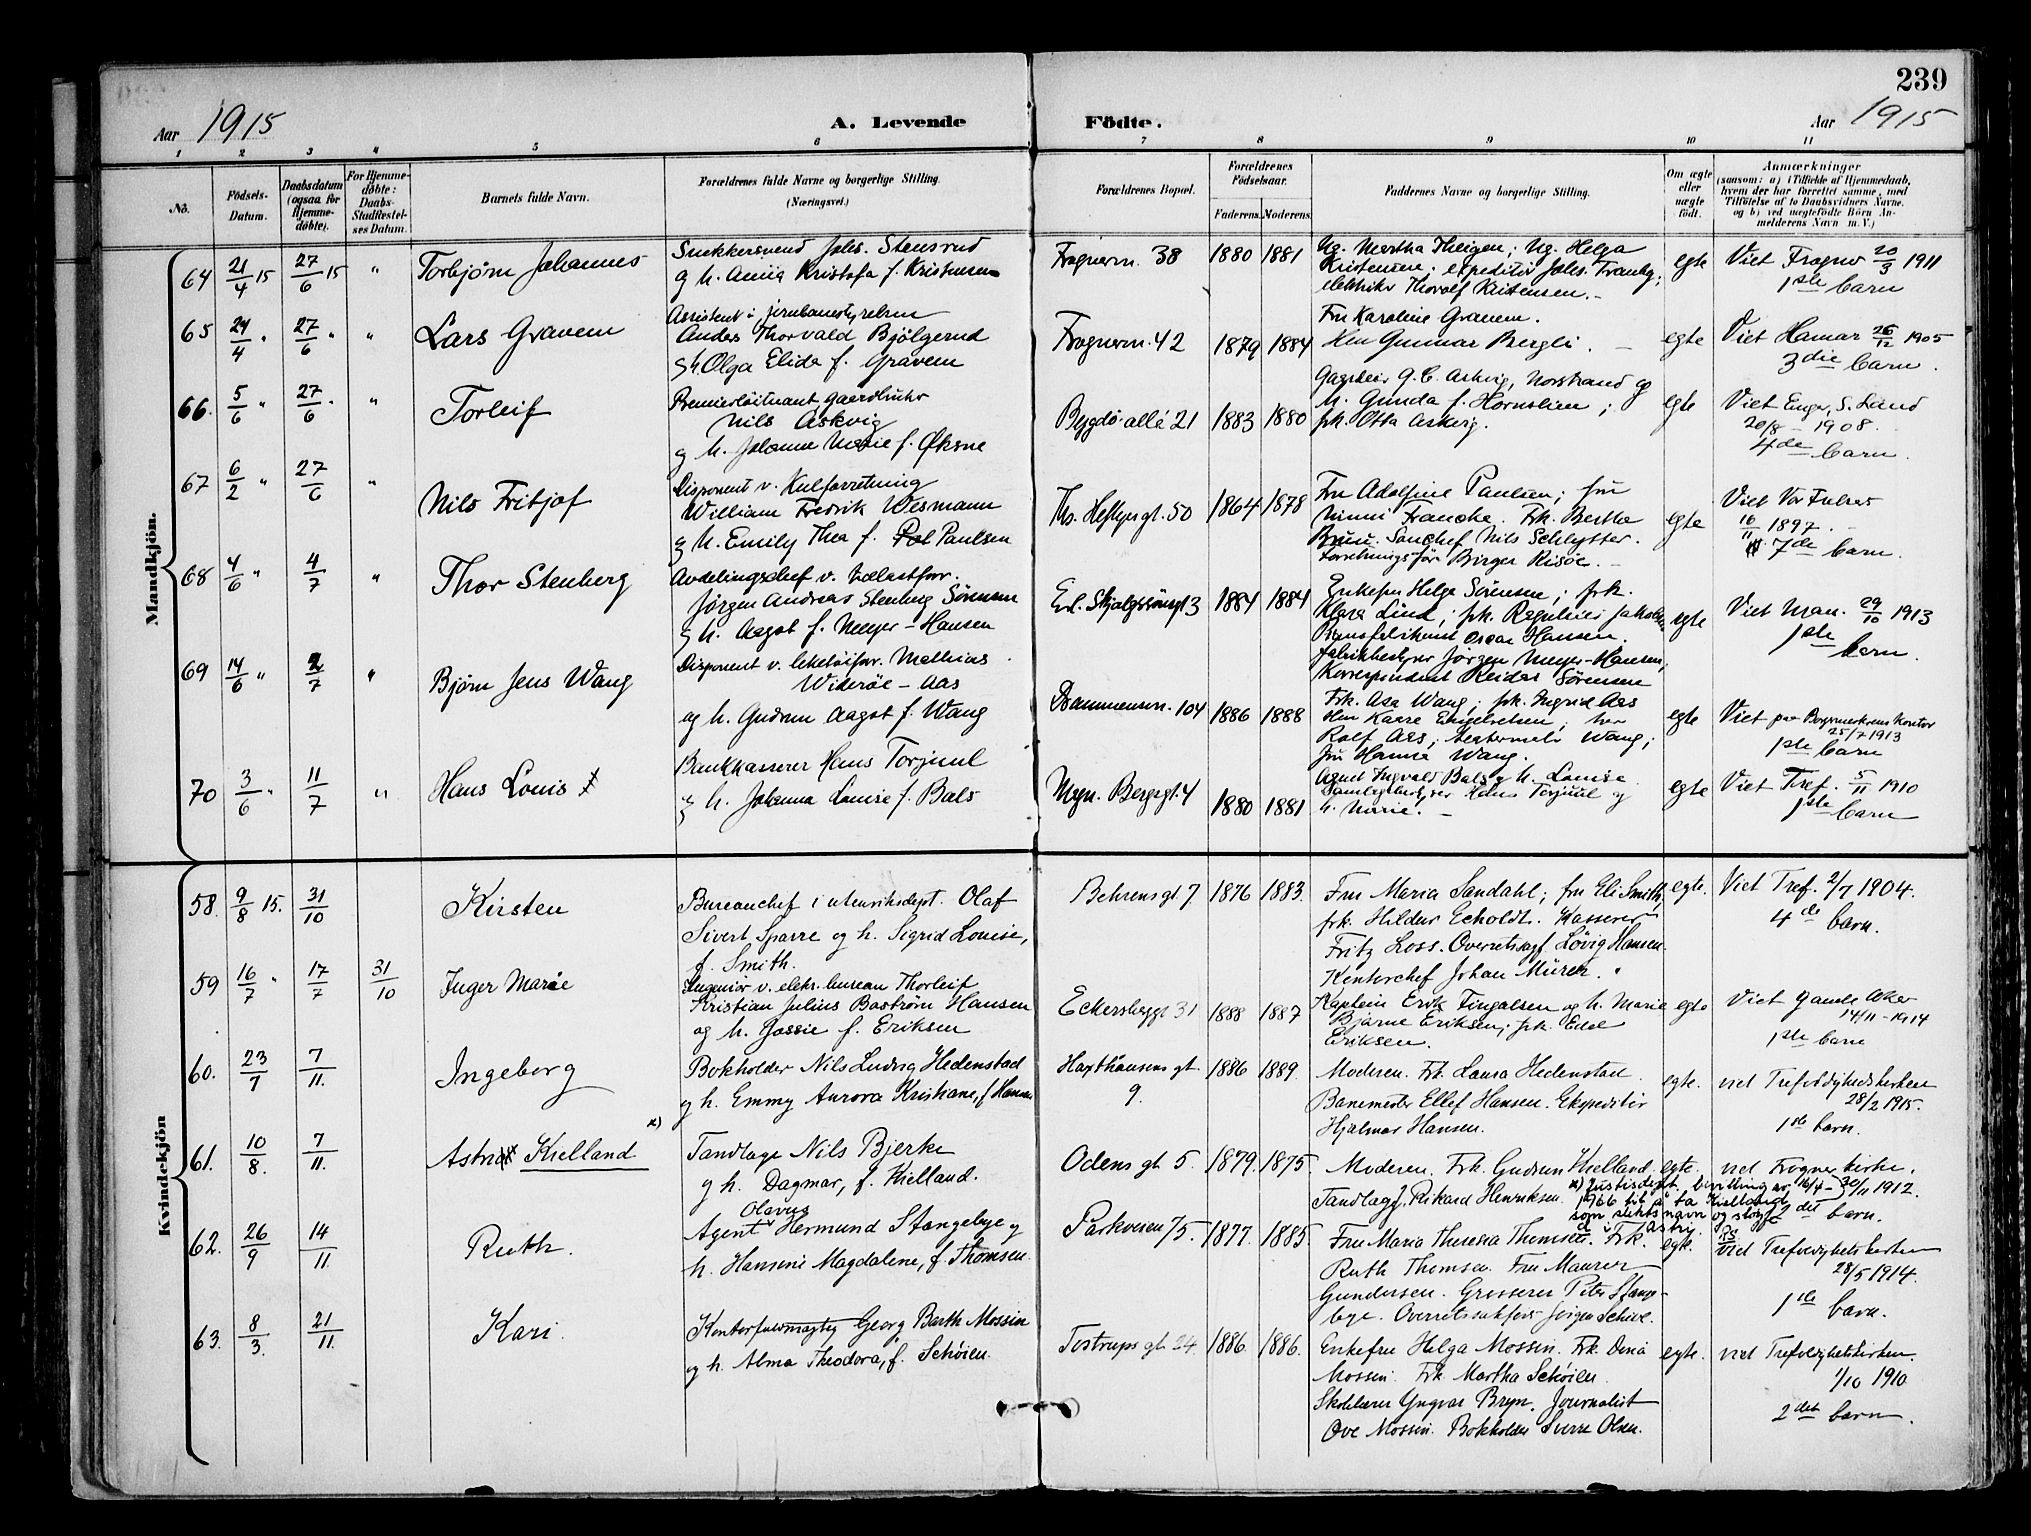 239
Aar 1915
A. Levende
Födte.
Aar 1915
1 2 3 4 5 6 7 8 9 10 11
No.
Födsels-Datum.
Daabsdatum (ogsaa for Hjemmedøbte).
For Hjemmedøbte: Daabs-Stadfæstelses Datum.
Barnets fulde Navn.
Forældrenes fulde Navne og borgerlige Stilling.
(Næringsvei.)
Forældrenes Bopæl.
Forældrenes Fødselsaar.
Faderens. Moderens.
Faddernes Navne og borgerlige Stilling.
Om ægte eller uægte født.
Anmærkninger
(saasom: a) i Tilfælde af Hjemmedaab,
hvem der har forrettet samme, med
Tilföielse af to Daabsvidners Navne,
og b) ved uægtefödte Börn An-
melderens Navn m. V.)
Mandkjön.
64 21/4 15 27/6 15 " Torbjørn Johannes
Snekkersvend Johs. Stensrud
og h. Anna Kristofa f. Kristensen
Frognerv. 38 1880 1881
Ug. Martha Theigen; Ug. Helga
Kristensen; expeditør Johs. Tranby;
elektriker Thorolf Kristensen.
egte
Viet Frogner 20/3 1911
1ste barn
65 24/4 " 27/6 " " Lars Gravem
Assistent i jernbanestyrelsen
Anders Thorvald Bjölgerud
og h. Olga Elida f. Gravem
Frognerv. 42 1879 1884
Fru Karoline Gravem.
Herr Gunnar Bergli.
egte
Viet Hamar 26/12 1905
3die barn.
66. 5/6 " 27/6 " " Torleif
Premierløitnant gaardbruker
Nils Askvig
og h. Johanne Marie f. Øksne
Bygdö allé 21 1883 1880
G. C. Askvig, Norstrand og
h. Gunda f. Hornslien;
frk. Otta Askvig.
egte
Viet Enger, S. Land
20/8 - 1908.
4de barn.
67 6/2 " 27/6 " Nils Fritjof
Disponent v. Kulforretning
William Fredrik Wesmann
og h. Emily Thea f. Paulsen
Ths. Heftyes gt. 50 1864 1878
Fru Adolfine Paulsen; fru
Ninni Francke. Frk. Berthe
Bruu. Nils Schlytter.
Forretningsfør Birger Risöe.
egte
Viet Vor Frelser
16/11 1897.
7de barn.
68 4/6 " 4/7 " Thor Stenberg
Avdelingschef v.
Jørgen Andreas Stenberg Sørensen
og h. Aagot f. Meyer-Hansen
Erl. Skjalgssønsgt 3 1884 1884
Enkefru Helga Sørensen; frk.
Klara Lind; frk. Reguline Jakobsen
Pianofabrikant Oscar Hansen.
fabrikbestyrer Jørgen Meyer-Hansen;
Korrespondent Reidar Sørensen
egte
Viet Man. 29/10 1913
1ste barn.
69 14/6 " 2/7 " Bjørn Jens Wang
Disponent v. leketöiforr. Mathias
Widerøe-Aas
og h. Gudrun Aagot f. Wang
Drammensv. 104 1886 1888
Frk. Asa Wang; frk. Ingrid Aas
Herr Kaare Engebretsen; herr
Rolf Aas; Wang;
fru Hanna Wang.
egte
Viet paa Borgmesterens kontor
25/7 1913
1ste barn
70 3/6 " 11/7 " Hans Louis
Bankkasserer Hans Torjuul
og h. Johanna Louise f. Bals
Magn. Bergsgt. 4 1880 1881
Agent Ingvald Bals og h. Louise
Hans Torjuul og
h. Marie.
egte
Viet Tref. 5/11 1910
1ste barn
Kvindekjön
58. 9/8 15. 31/10 Kirsten
Bureauchef i utenriksdept. Olaf
Sivert Sparre og h. Sigrid Louise,
f. Smith.
Behrens gt. 7 1876 1883.
Fru Maria Sandahl; fru Eli Smith,
frk. Hildur Echoldt. Kasserer
Fritz Loss. Overretssagf. Løvig Hansen.
Kontorchef Johan Mürer.
egte.
Viet Tref. 2/7 1904.
4de barn.
59 16/7 " 17/7 31/10 Inger Marie
Ingeniør v. elektr. bureau Thorleif
Kristian Julius Bostrøm Hansen
og h. Jossie f. Eriksen
Eckersbergsgt 31 1888 1887
Kaptein Erik Tingalsen og h. Marie
Bjarne Eriksen; frk. Else
Eriksen.
egte
Viet Gamle Aker
14/11 - 1914
1ste barn
60. 23/7 7/11. Ingeborg
Bokholder Nils Ludvig Hedenstad
og h. Emmy Aurora Kristiane, f. Hansen
Haxthausens gt. 9. 1886 1889.
Moderen. Frk. Laura Hedenstad.
Banemester Ellef Hansen. Ekspeditør
Hjalmar Hansen.
egte.
ved Trefoldighedskirken
28/2 1915.
1ste barn.
61. 10/8. 7/11. Astri Kielland x)
Tandlæge Nils Bjerke
og h. Dagmar, f. Kielland.
Odens gt. 5. 1879. 1875.
Moderen. Frk. Gudrun Kielland.
Tandlæge J. Rikard Henriksen
x) Justisdept. bevilling av 16/4-
1966 til å ta Kielland
som slektsnavn og stryke
d i Astri
egte.
ved Frogner kirke.
30/11 1912.
2det barn.
62. 26/9 14/11 Ruth.
Olavus
Agent Hermund Stangebye og
h. Hansine Magdalene, f. Thomsen.
Parkveien 75. 1877. 1885.
Fru Maria Theresia Thomsen. Frk.
Ruth Thomsen. Fru Maurer
Gundersen. Grosserer Peter Stange-
bye. Overretssakfører Jörgen Schive.
egte.
ved Trefoldighetskirken
28/5 1914.
1ste barn.
63. 8/3. 21/11. Kari.
Kontorfuldmægtig Georg Barth Mossin
og h. Alma Theodora, f. Schøien.
Tostrups gt. 24. 1886. 1886.
Enkefru Helga Mossin. Frk. Dina
Mossin. Frk. Martha Schøien
Skolelærer Yngvar Bryn. Journalist
Ove Mossin. Bokholder Sverre Olsen.
egte.
ved Trefoldighetskirken.
1/10 1910
2det barn.